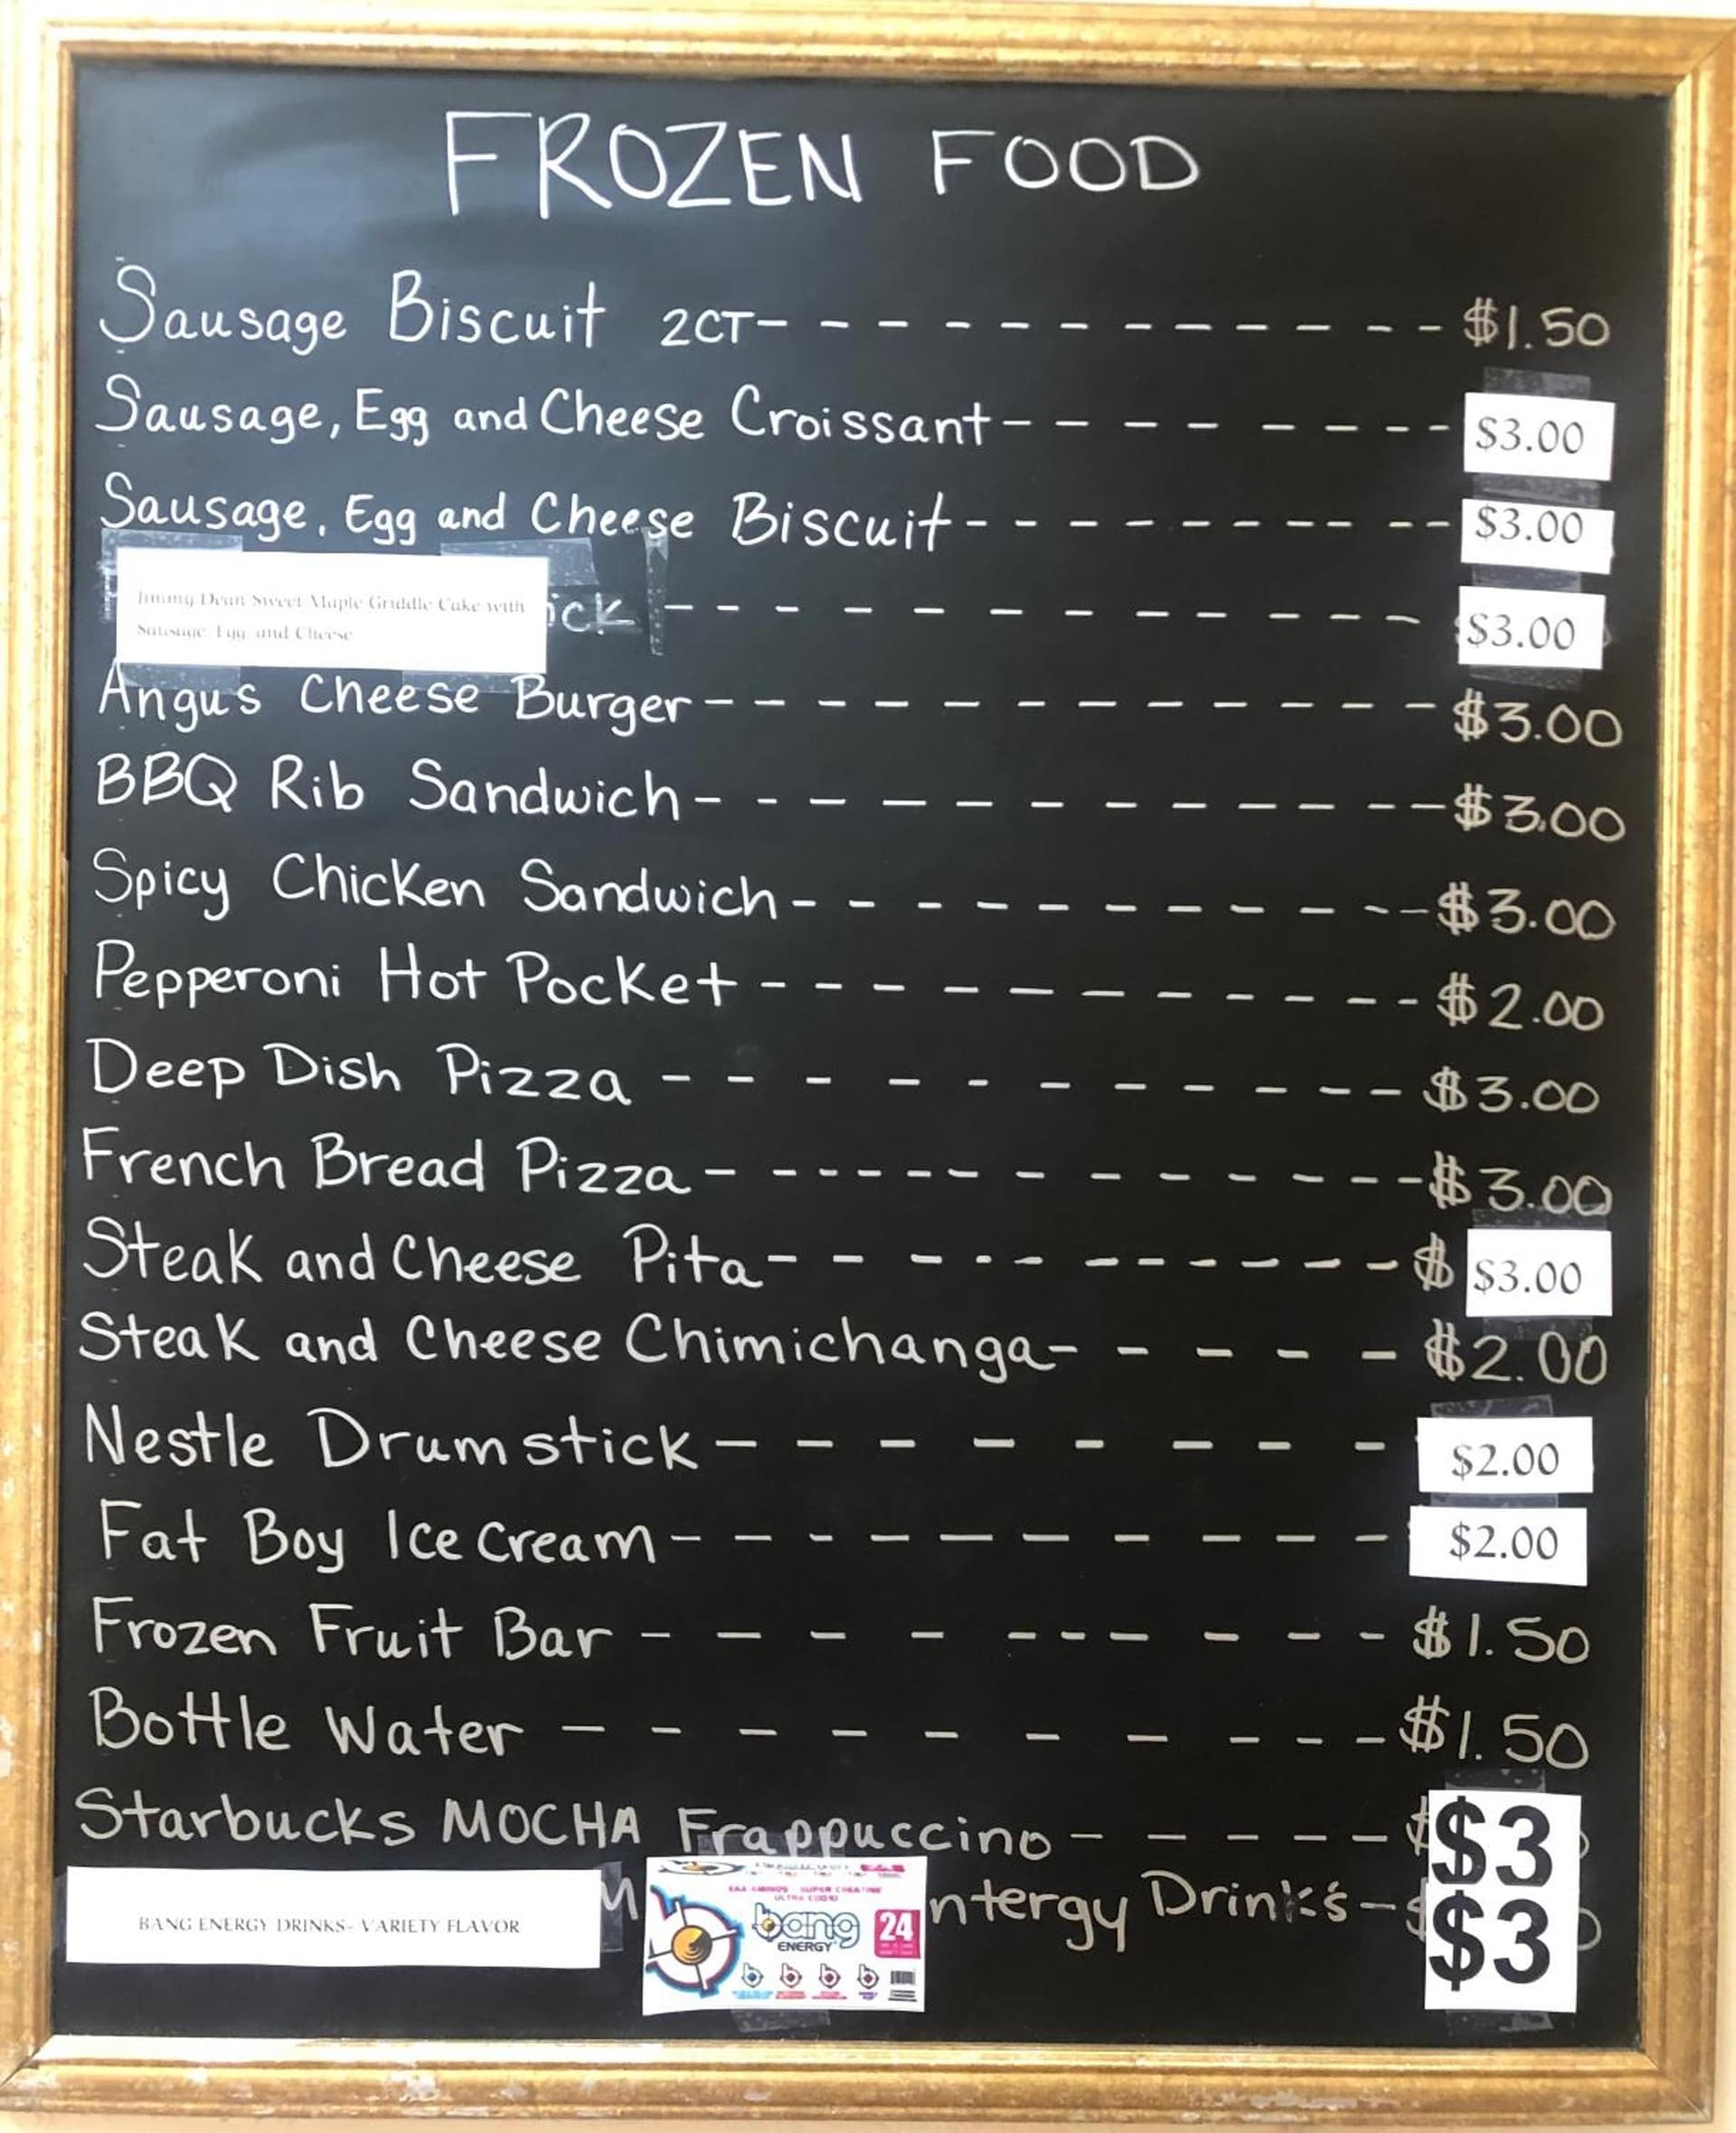 FROZEN FOOD
Sausage Biscuit 2CT- - - - - - - - - - - - $1.50
Sausage, Egg and Cheese Croissant- - - - - - - - - $3.00
Sausage, Egg and Cheese Biscuit- - - - - - - - - - - $3.00
Jimmy Dean Sweet Maple Griddle Cake with
Sausage, Egg, and Cheese
ick - - - - - - - - - - - - $3.00
Angus Cheese Burger- - - - - - - - - - - - $3.00
BBQ Rib Sandwich- - - - - - - - - - - - $3.00
Spicy Chicken Sandwich- - - - - - - - - - - $3.00
Pepperoni Hot Pocket - - - - - - - - - - - $2.00
Deep Dish Pizza - - - - - - - - - - - $3.00
French Bread Pizza- - - - - - - - - - - - - $3.00
Steak and Cheese Pita- - - - - - - - - - - - $ $3.00
Steak and Cheese Chimichanga- - - - - $2.00
Nestle Drumstick - - - - - - - - $2.00
Fat Boy Ice Cream- - - - - - - - - - $2.00
Frozen Fruit Bar - - - - - - - - - - $1.50
Bottle Water - - - - - - - - - - $1.50
Starbucks MOCHA Frappuccino - - - - - $3
BANG ENERGY DRINKS- VARIETY FLAVOR M ntergy Drinks- $3
EAA AMINOS SUPER CREATINE
ULTRA COQ10
bang 24
ENERGY